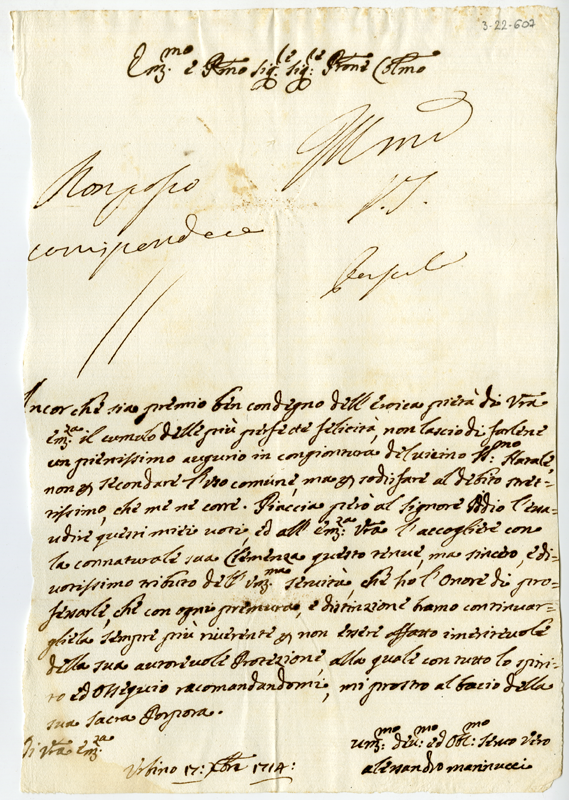 3-22-607
Em.mo e Rmo Sig.re Sig.re Prone Colmo
Non posso
corrispondere
Ancor che sia premio ben condegno dell'Eroica pietà di Vra
Em.za il cumulo delle più perfette felicità, non lascio di farlene
un pienissimo augurio in congiontura del vicino S.mo Natale,
non p secondare l'uso comune, ma p sodisfare al debito stret-
tissimo, che me ne corre. Piaccia però al Signore Iddio l'esau-
dire questi miei voti, ed all'Em.za Vra l'accogliere con
la connaturale sua Clemenza questo tenue, ma sincero, e di-
votissimo tributo dell'Um.ma servitù che hò l'Onore di pro-
fessarle, che con ogni premura, e distinzione bramo continuar-
gliela sempre più riverente p non essere affatto immeritevole
della sua autorevole Protezione, alla quale con tutto lo spiri-
to ed Ossequio racomandandomi, mi prostro al bacio della
sua sacra Porpora.
Di Vra Em.za
Um.mo dev.mo ed Obl.mo Servo Vero
Urbino 17: Xbre 1714:
Alessandro Mannucci